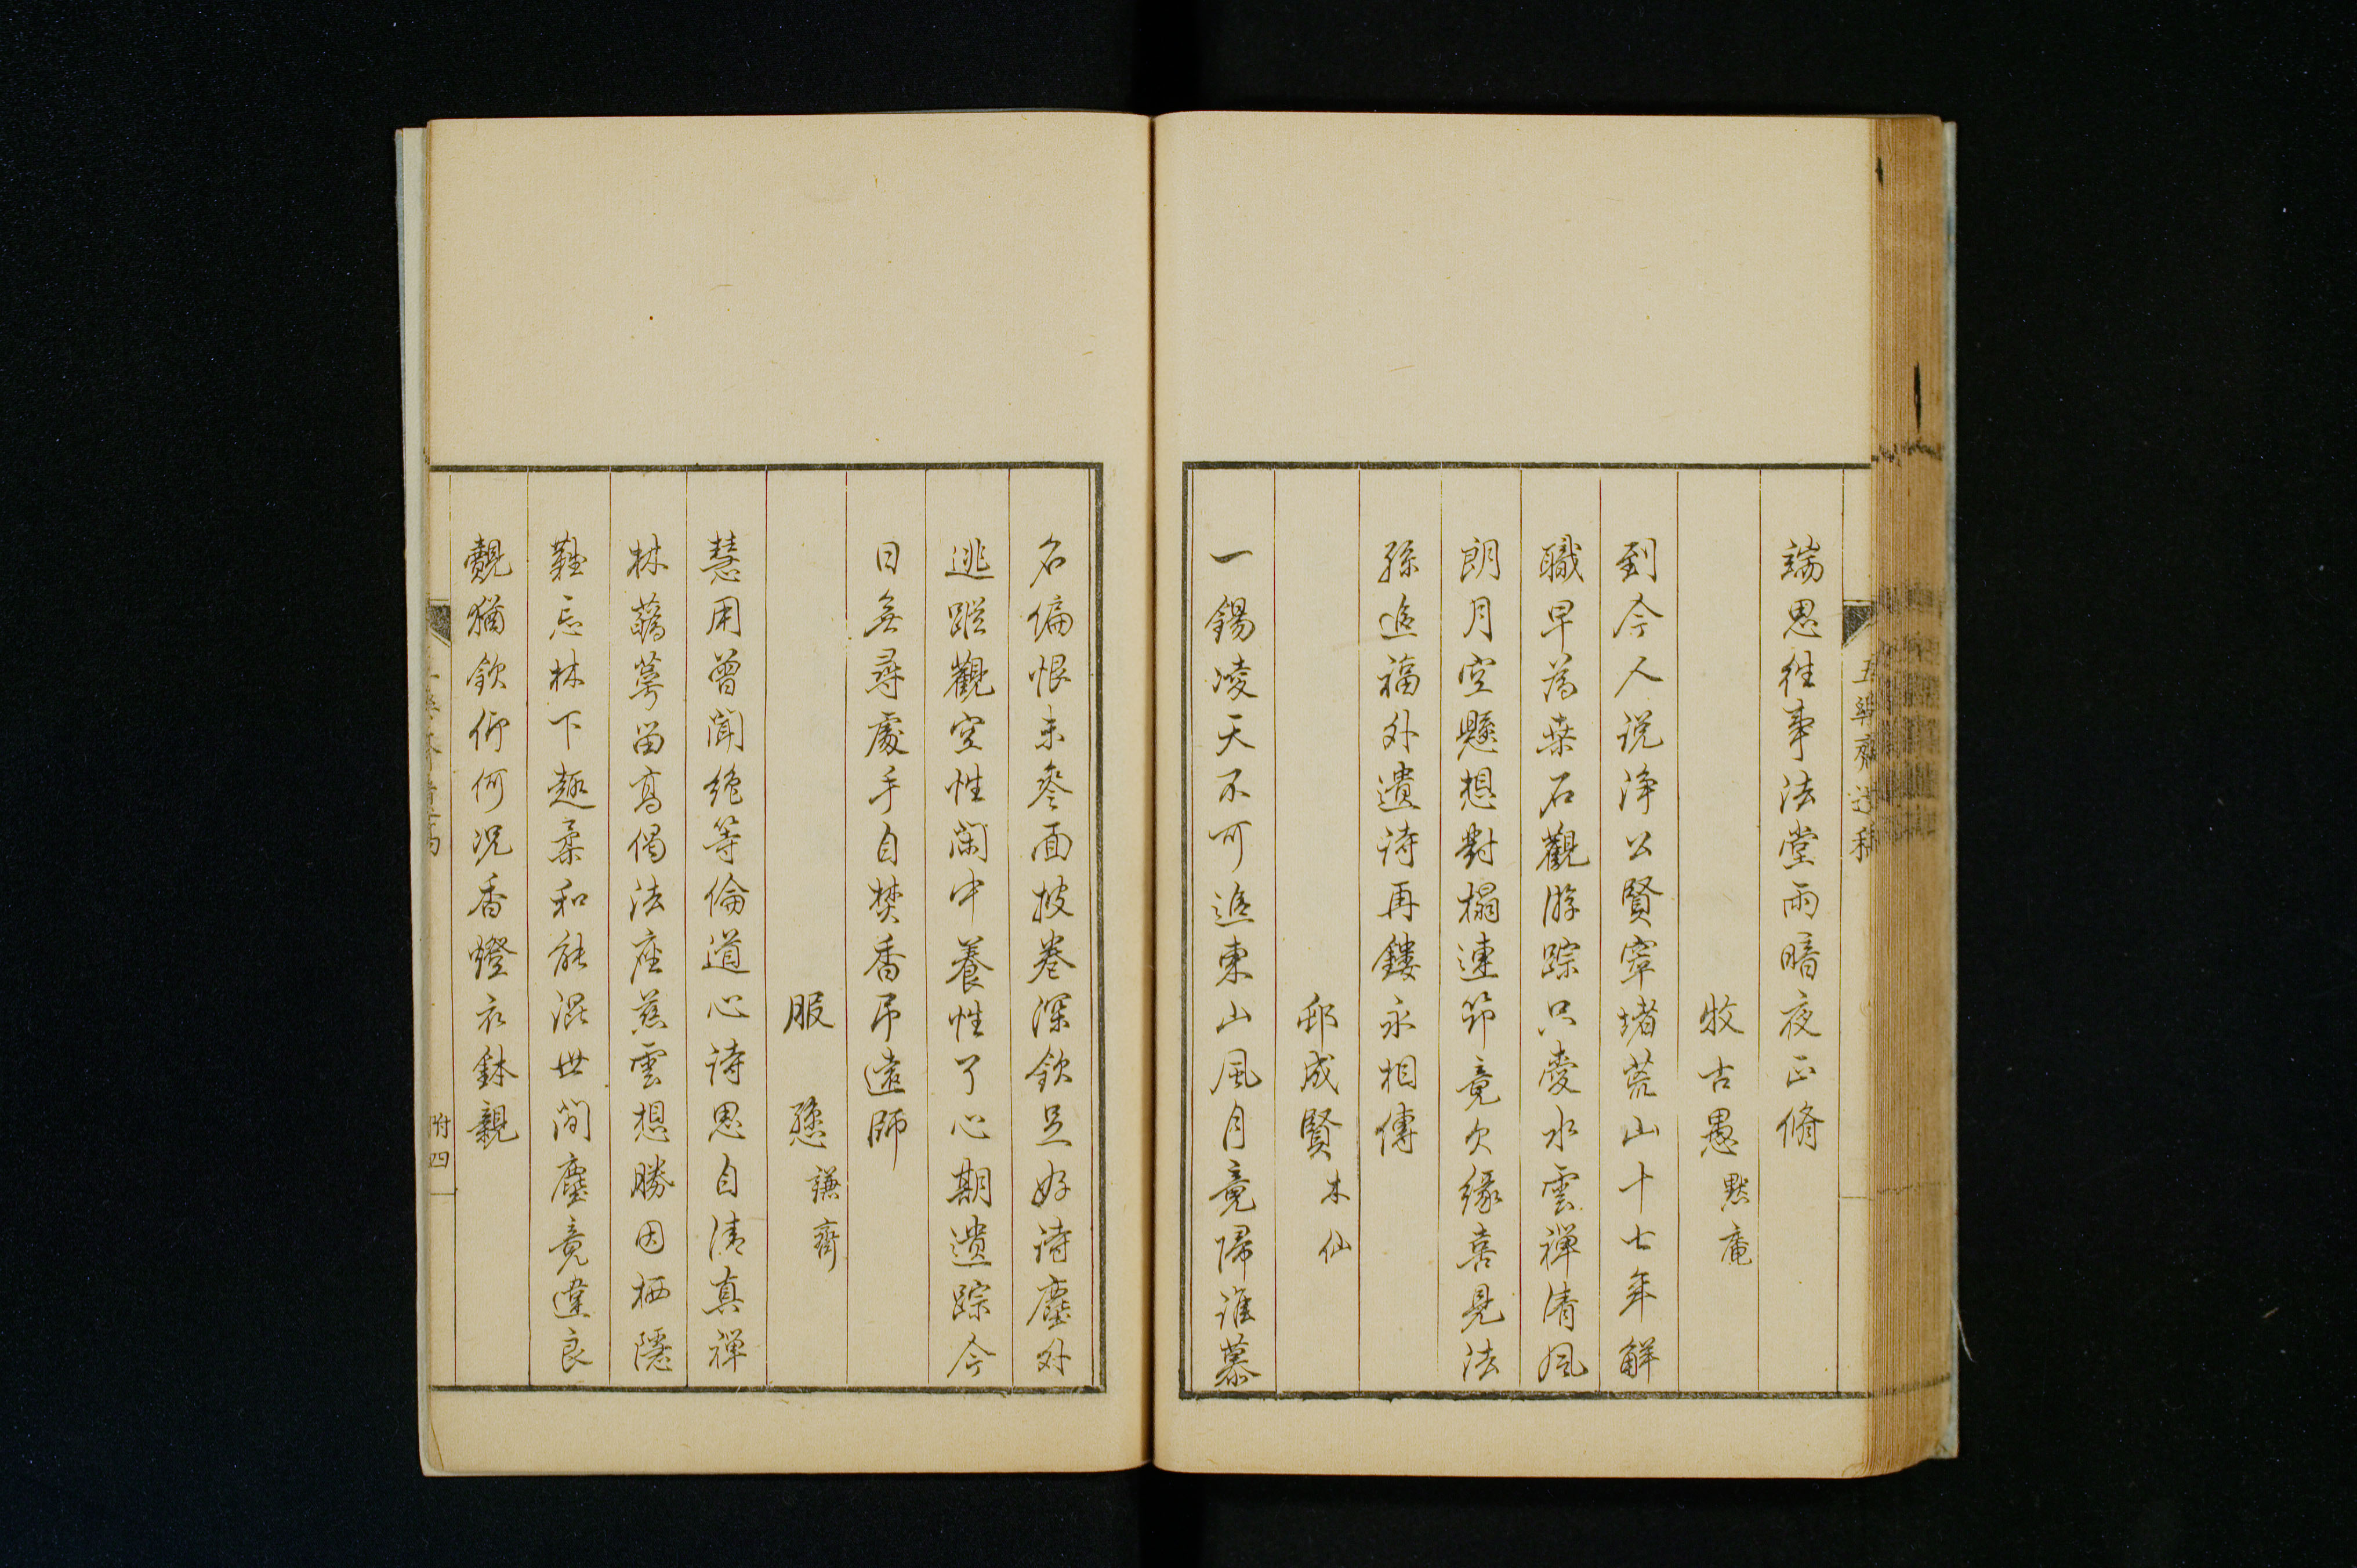 端思往事法堂雨暗夜正脩
牧古愚默庵
到今人説浄公賢窣堵荒山十七年解
職早為棄石觀游踪只愛水雲禪清風
朗月空懸想對榻連節竟欠緣喜見法
孫追福外遺诗再鏤永相傳
邨成賢木仙
一錫凌天不可追東山風月竟歸誰慕
名偏恨未參面披卷深欽足好诗塵外
逃蹤觀空性閑中養性了心期遺踪今
日無尋處手自焚香吊遠師
服懸謙齋
慧用曾聞絶等倫道心诗思自清真禅
林藹萼留高偈法座慈雲想勝因栖隱
難忘林下趣柔和能混世間塵竟違良
覿猶欽仰何况香燈衣鉢親
附四